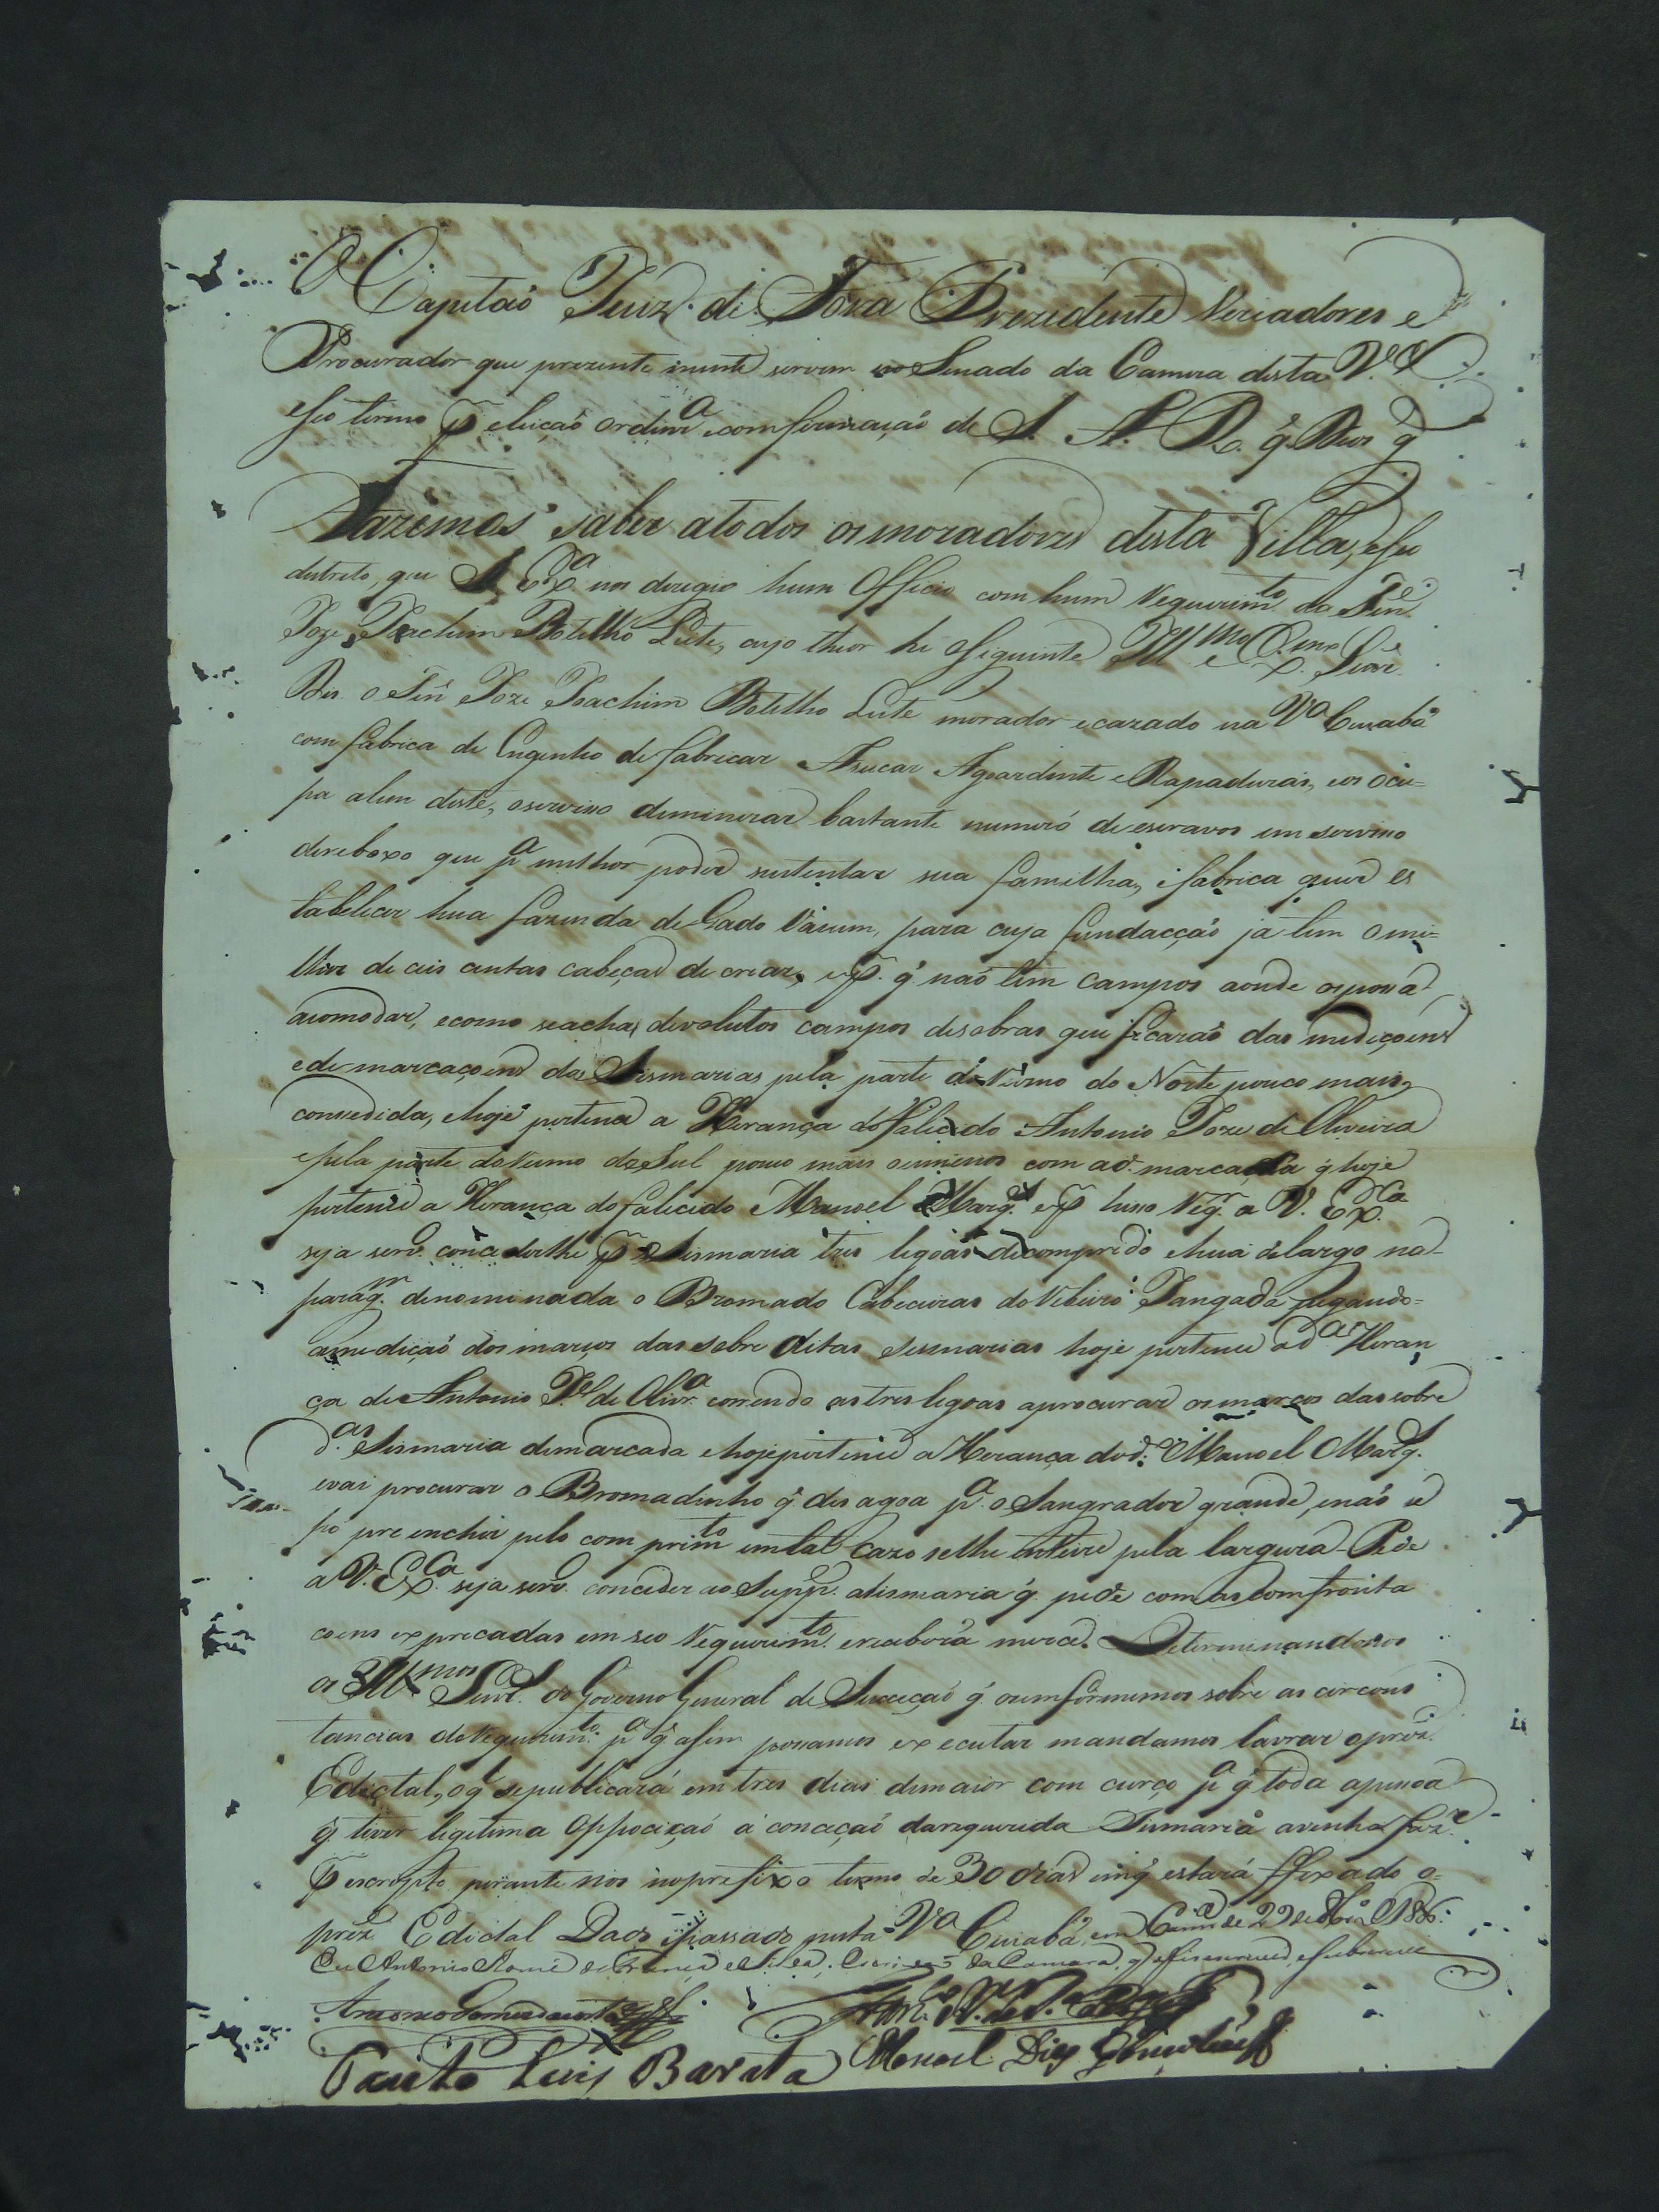 O Capitaõ Juiz de Fora Prezidente Veriadores e
Procurador que prezente mente servem no Senado da Camera desta V.ª
e seo termo p eleiçaõ ordinr.ª e comfirmaçaõ de S. A. R. q̃ Deos g.
Fazemos saber atodos os moradores desta Villa, e seo
destreto, que S. Ex.ª nos deregio hum Officio com hum Requerim.to do Ten.e
Joze Joachim Botelho Leite, cujo theor he o seguinte Ill.mo e Ex.mo Senr.
Diz o Ten.e Joze Joachim Botelho Leite morador e cazado na V.ª Cuiabá
com fabrica de Engenho de fabricar Asucar Agoardente e Rapaduras, e os ocu=
pa alem deste, o serviso deminerar bastante numeró de escravos em serviso
de reboxo que p.ª milhor poder sustentar sua familha, e fabrica quer es
tabelicer hua fazenda de Gado Vacum, para cuja fundacçaõ já tem o mi=
lhor de ceis centas cabeças de criar, e p. q̃ naõ tem campos aonde os possa
acomodar, e como se achaõ devolutos campos de sobras que ficaraõ das mediçoens
e demarcaçoens das Sismarias pela parte do Rumo do Norte pouco mais,
consedida, e hoje pertence a Herança do Falecido Antonio Joze de Oliveira
e pela parte do Rumo do Sul pouco mais ou menos com a d. marcada q̃ hoje
pertence a Herança do falicido Manoel Marq.es e p isso Req.r a V. Ex.ca
seja serv.o conciderlhe p Sismaria tres legoas de comprido e hua de largo na
parag.m denominada o Bromado Cabeceiras do Ribeiró Jangada pegando=
a mediçaõ dos marcos das sobre ditas sesmarias hoje pertence a d.as Heran
ça de Antonio J.e de Olivr.ª correndo as tres legoas aprocurar os marcos das sobre
d.as Sismaria demarcada e hoje pertence a Herança do d.o Manoel Marq.
e vai procurar o Bromadinho q̃ desagoa p.ª o Sangrador grande, e naõ se
po preencher pelo comprim.to em tal cazo selhe inteire pela largura - P. de
a V. Ex.ca seja serv.o conceder ao Supp.e a Sismaria q̃ pede com as comfronta
coens expreçadas em seo Requerim.to e receberá mercê. Determinandonos
os Ill.mos Senr.es do Governo General de Suceçaõ q̃ o imformemos sobre as circons
tancias do Requerim.to p.ª q̃ asim possamos executar mandamos lavrar o prez.e
Edictal, o q̃ sepublicará em tres dias de maior com curço p.ª q̃ toda apesoa
q̃ tiver ligitima Oppociçaõ á conceçaõ da requerida Sismaria a venha faz.r
p escripto perante nós no prefixo termo de 30 dias em q̃ estará ffixado o=
prez.e Edictal Dado e passado nesta V.ª Cuiabá, em Camr.ª de 22 de
Eu Antonio da Silva, Escrivaõ da Camara, q̃ o fis escrever, e sobscrevi
Antonio Gomes
Paulo Luis Barata Manoel Dias